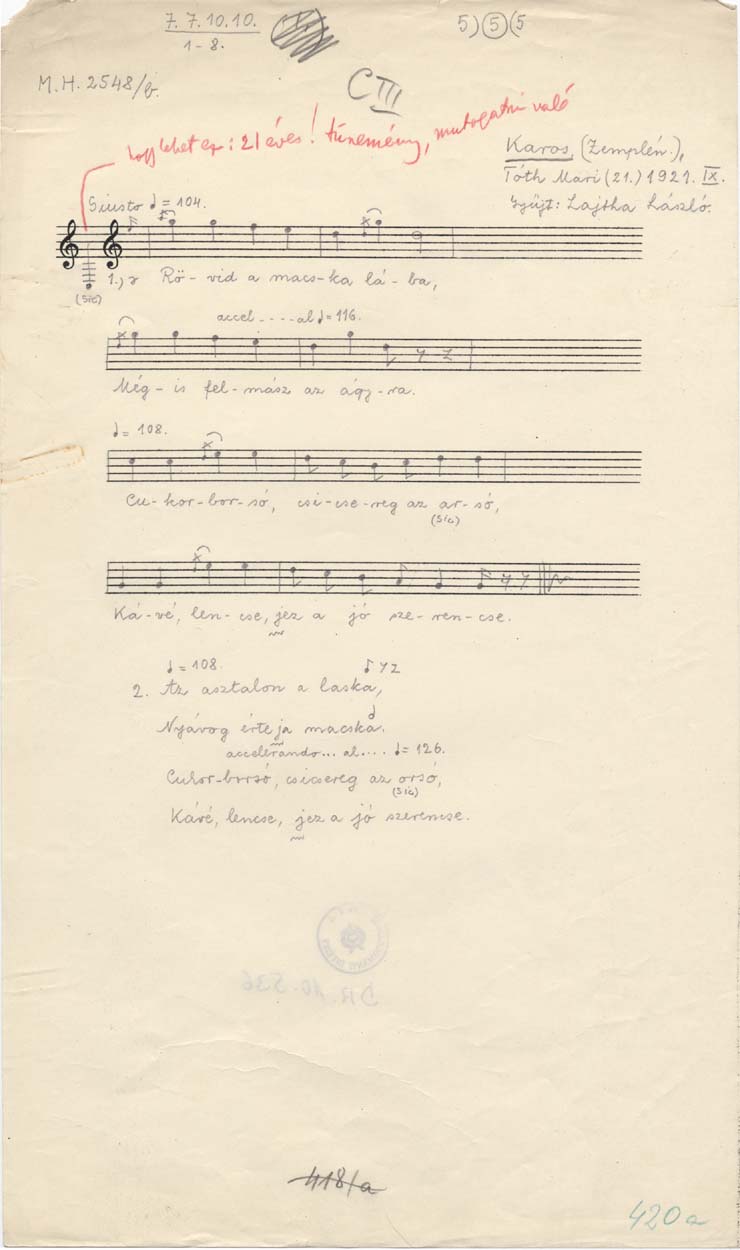 7. 7. 10. 10.
1 - 8.
5) 5 (5
M. H. 2548/b.
C III
hogy lehet ez: 21 éves! tünemény, mutogatni való
Karos, (Zemplén.),
Tóth Mari (21.) 1921. IX.
Gyüjt: Lajtha László.
Giusto ♩ = 104.
(sic)
1.) Rö - vid a macs - ka lá - ba,
accel - - - - al ♩ = 116.
Még - is fel - mász az ágy - ra.
♩ = 108.
Cu - kor - bor - só, csi - cse - reg az ar - só,
(sic)
Ká - vé, len - cse, jez a jó sze - ren - cse.
♩ = 108.
2. Az asztalon a laska,
Nyávog érte ja macska.
accelerando... al.... ♩ = 126.
Cukor-borsó, csicsereg az orsó,
(sic)
Kávé, lencse, jez a jó szerencse.
BR. 10.536
418/a
420 a